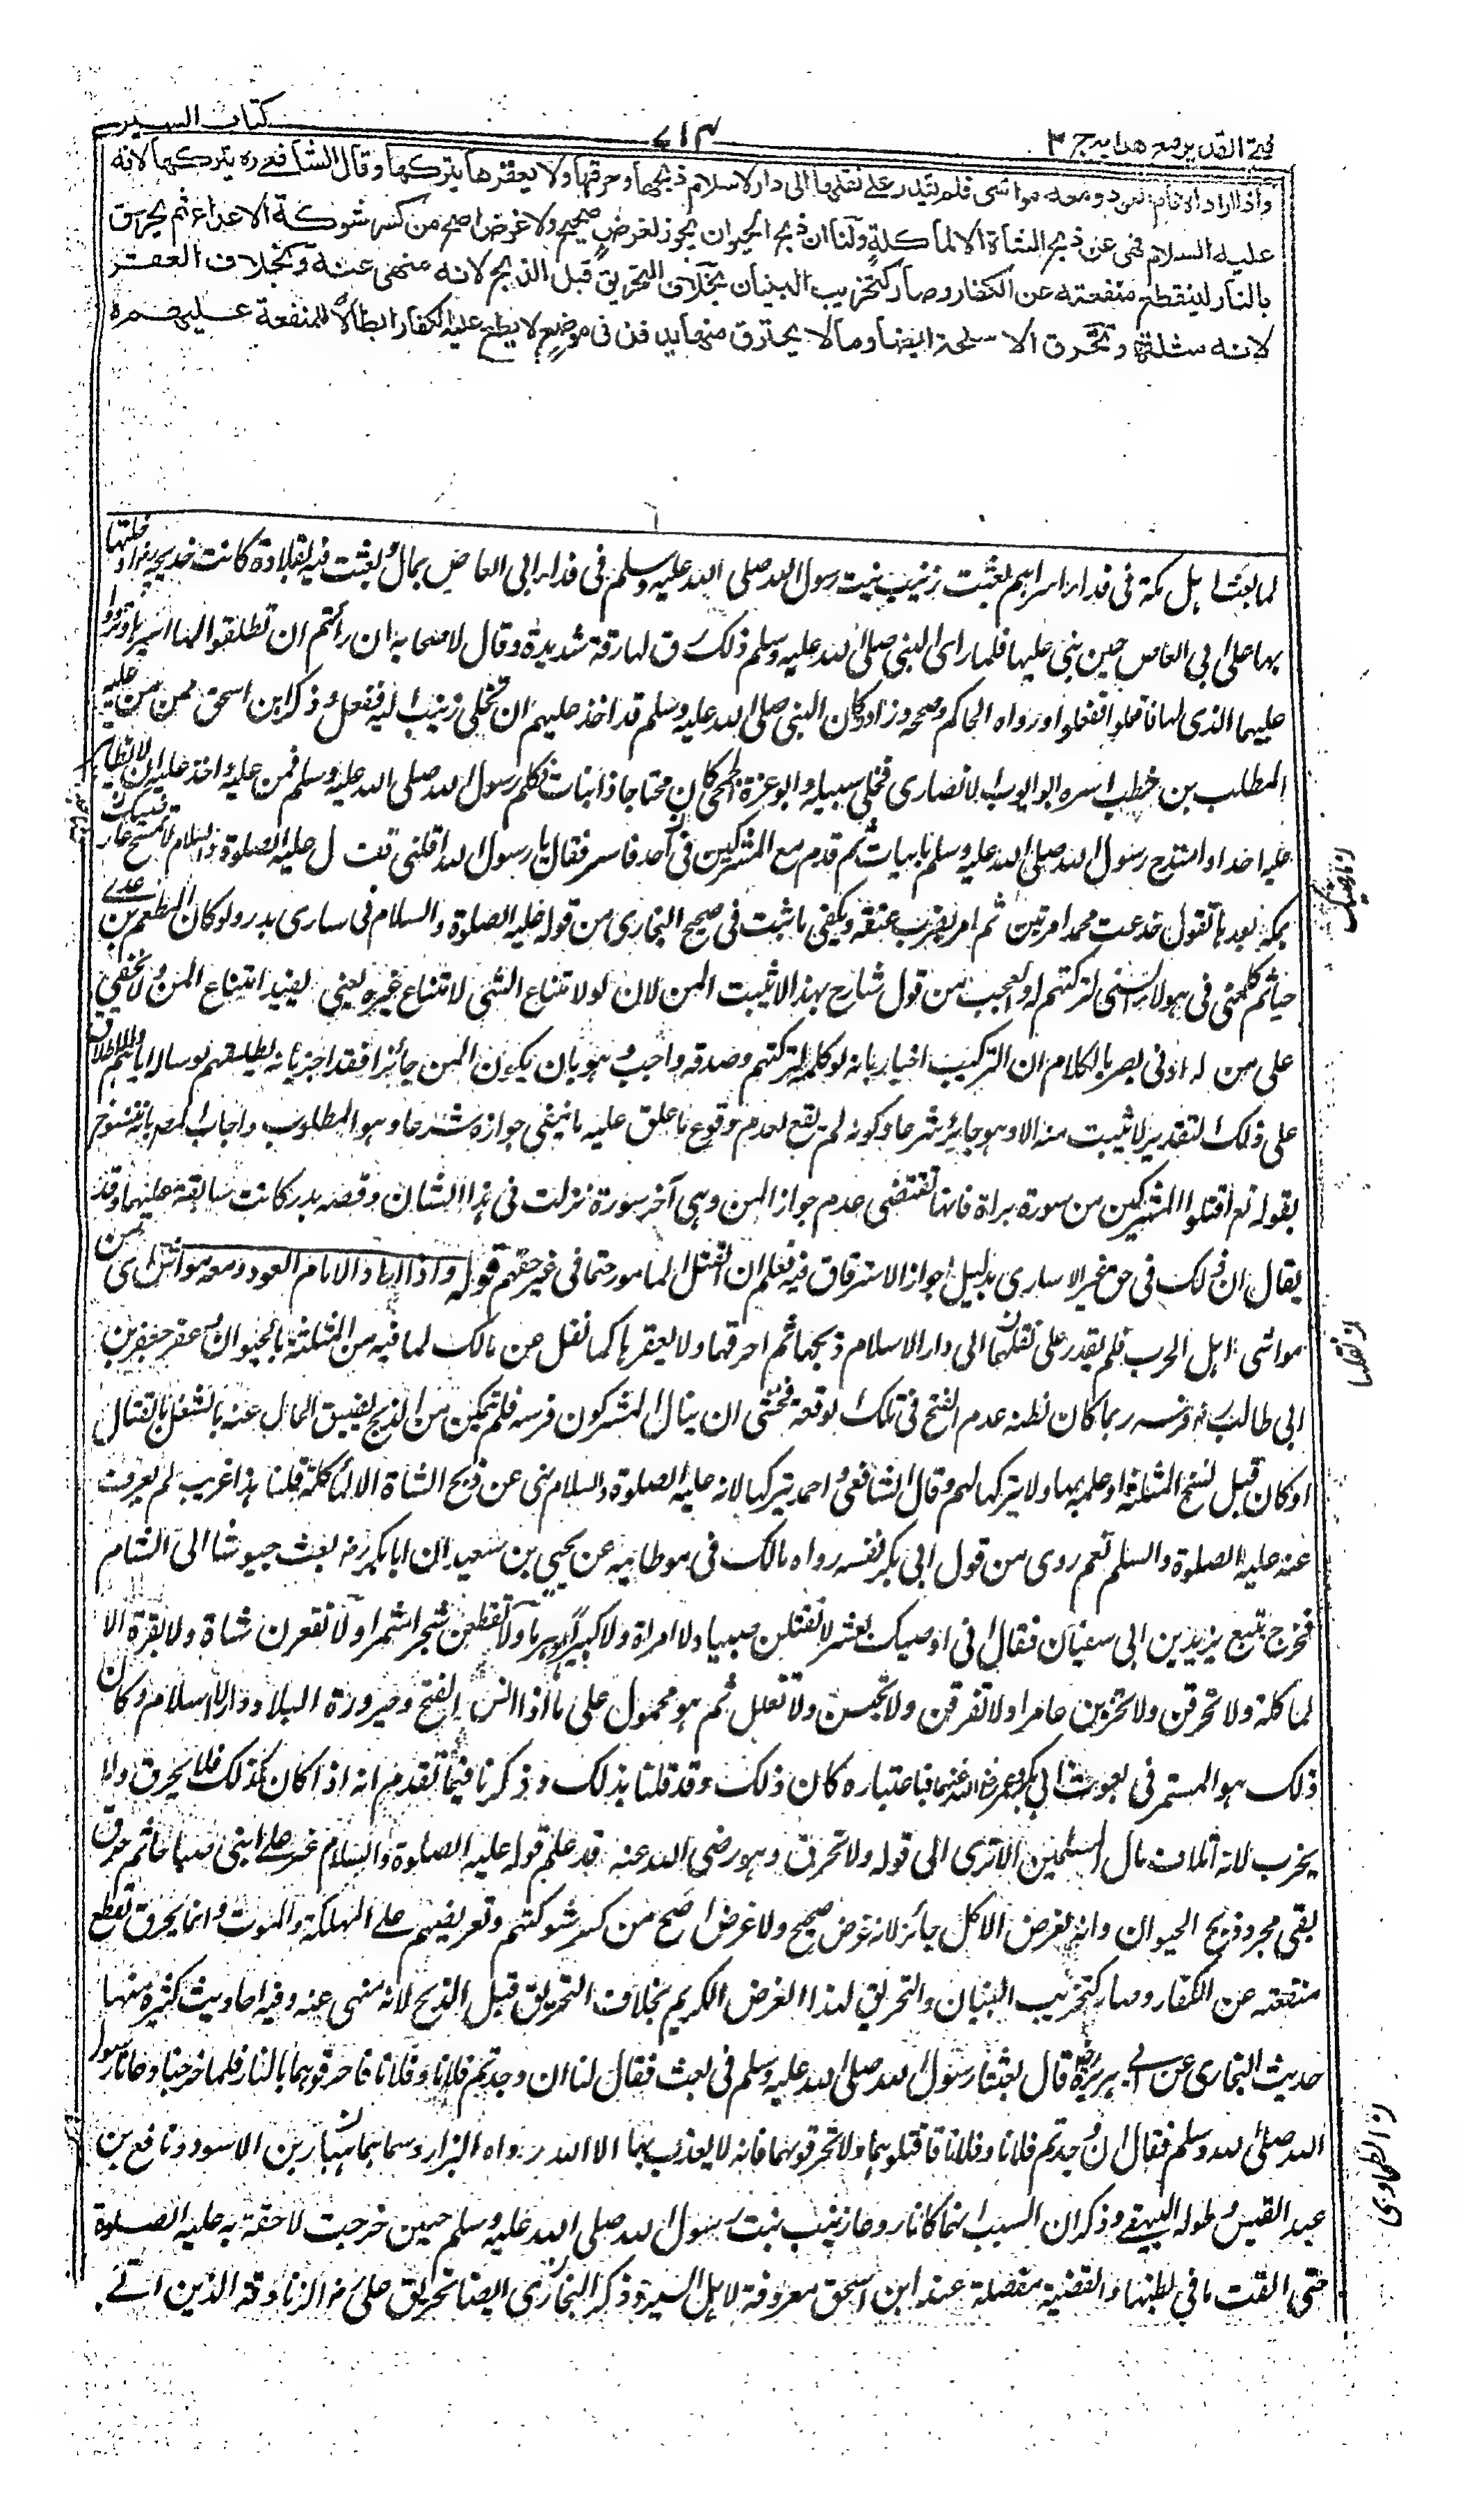 فتح القدير مع هدايه ج ٣
٧١٤
كتاب السير
واذا اراد الامام العود ومعه مواشى فلم يقدر على نقلها الى دار الاسلام ذبحها وحرقها ولا يعقرها ولا يتركها وقال الشافعى ره يتركها لانه
عليه السلام نهى عن ذبح الشاة الا لمأكلة ولنا ان ذبح الحيوان يجوز لغرض صحيح ولا غرض اصح من كسر شوكة الاعداء ثم يحرق
بالنار لينقطع منفعته عن الكفار وصار كتخريب البنيان بخلاف التحريق قبل الذبح لانه منهى عنه وبخلاف العقر
لانه مثلة وتحرق الاسلحة ايضا وما لا يحترق منها يدفن فى موضع لا يطلع عليه الكفار ابطالا للمنفعة عليهم م
لما بعث اہل مكة فى فداء اسراہم بعثت زينب بنت رسول الله صلى الله عليه وسلم فى فداء ابى العاص بمال وبعثت فيه بقلادة كانت خديجة رض ادخلتها
بہا على ابى العاص حين بنى عليها فلما راى النبى صلى الله عليه وسلم ذلك رق لها رقة شديدة وقال لاصحابه ان رائتم ان تطلقوا لها اسيرها وتردوا
عليها الذى لها فافعلوا ففعلوا ورواه الحاكم وصححه وزاد وكان النبى صلى الله عليه وسلم قد اخذ عليہم ان تخلى زينب اليه ففعل وذكر ابن اسحق ممن من عليه
المطلب بن حنطب اسره ابو ايوب الانصارى فخلى سبيله وابو عزة الجمحى كان محتاجا ذا بنات فكلم رسول الله صلى الله عليه وسلم فمن عليه واخذ عليه ان لا يظاہر
عليه احدا وامتدح رسول الله صلى الله عليه وسلم بابيات ثم قدم مع المشركين فى احد فاسر فقال يا رسول الله اقلنى فقال عليه الصلوة والسلام لا تمسح عارضيك
بمكة بعدها تقول خدعت محمدا مرتين ثم امر بضرب عنقه ويكفى ما ثبت فى صحيح البخارى من قوله عليه الصلوة والسلام فى سارى بدر ولو كان المطعم بن عدے
حيا ثم كلمنى فى ہولاء النتنى لتركتہم له والعجب من قول شارح بہذا لا يثبت المن لان لو لامتناع الشى لامتناع غيره يعنى يفيد امتناع المن ولا يخفى
على من له ادنى بصر بالكلام ان التركيب اخبار بانه لو كلمه لتركہم وصدقه واجب وہو بان يكون المن جائزا فقد اخبر بانه يطلقہم لو ساله اياہم والاطلاق
على ذلك التقدير لا يثبت منه الا وہو جائز شرعا وكونه لم يقع لعدم وقوع ما علق عليه لا ينفى جوازه شرعا وہو المطلوب واجاب المص بانه منسوخ
بقوله تع اقتلوا المشركين من سورة براة فانہا تقتضى عدم جواز المن وہى آخر سورة نزلت فى ہذا الشان وقصة بدر كانت سابقة عليها وقد
يقال ان ذلك فى حق غير الاسارى بدليل جواز الاسترقاق فيه فعلم ان القتل المامور حتما فى غيرہم قوله واذا اراد الامام العود ومعه مواش اى من
مواشى اہل الحرب فلم يقدر على نقلها الى دار الاسلام ذبحها ثم احرقها ولا يعقرہا كما نقل عن مالك لما فيه من المثلة بالحيوان وعقر جعفر بن
ابى طالب رض فرسه ربما كان لظنه عدم الفتح فى تلك الوقعة فخشى ان ينال المشركون فرسه فلم يتمكن من الذبح لضيق الحال عنه بالشغل بالقتال
او كان قبل نسخ المثلة او علمه بہا ولا يتركها لہم وقال الشافعى واحمد يتركها لانه عليه الصلوة والسلام نہى عن ذبح الشاة الا لمأكلة قلنا ہذا غريب لم يعرف
عنه عليه الصلوة والسلم نعم روى من قول ابى بكر نفسه رواه مالك فى موطايه عن يحيى بن سعيد ان ابا بكر رض بعث جيوشا الى الشام
فخرج يتبع يزيد بن ابى سفيان فقال انى اوصيك بعشر لا تقتلن صبيا ولا امراة ولا كبيرا ہرما ولا تقطعن شجرا مثمرا ولا تعقرن شاة ولا بقرة الا
لماكلة ولا تحرقن ولا تخربن عامرا ولا تفرقن ولا تجبن ولا تغلل ثم ہو محمول على ما اذا انس الفتح وصيرورة البلاد دار الاسلام وكان
ذلك ہو المستمر فى بعوث ابى بكر وعمر رضى الله عنهما فباعتباره كان ذلك وقد قلنا بذلك وذكرنا فيما تقدم انه اذا كان كذلك فلا يحرق ولا
يخرب لانه اتلاف مال المسلمين الا ترى الى قوله ولا تحرق وہو رضى الله عنه قد علم قوله عليه الصلوة والسلام اغر على ابنى صباحا ثم حرق
بقى مجرد ذبح الحيوان وانه لغرض الاكل جائز لانه غرض صحيح ولا غرض اصح من كسر شوكتہم وتعريضہم على الہلكة والموت وانما يحرق لقطع
منفعته عن الكفار وصار كتخريب البنيان والتحريق لہذا الغرض الكريم بخلاف التحريق قبل الذبح لانه منہى عنه وفيه احاديث كثيرة منہا
حديث البخارى عن ابى ہريرة رض قال بعثنا رسول الله صلى الله عليه وسلم فى بعث فقال لنا ان وجدتم فلانا وفلانا فاحرقوہما بالنار فلما خرجنا دعانا رسول
الله صلى الله وسلم فقال ان وجدتم فلانا وفلانا فاقتلوہما ولا تحرقوہما فانه لا يعذب بہا الا الله رواه البزار وسماہما ہبار بن الاسود ونافع بن
عبد القيس وطوله البيہقے وذكر ان السبب انہما كانا روعا زينب بنت رسول الله صلى الله عليه وسلم حين خرجت لاحقة به عليه الصلوة
حتى القت ما فى بطنہا والقضية مفصلة عند ابن اسحق معروفة لاہل السيرة وذكر البخارى ايضا تحريق على رض الزنادقة الذين اتے